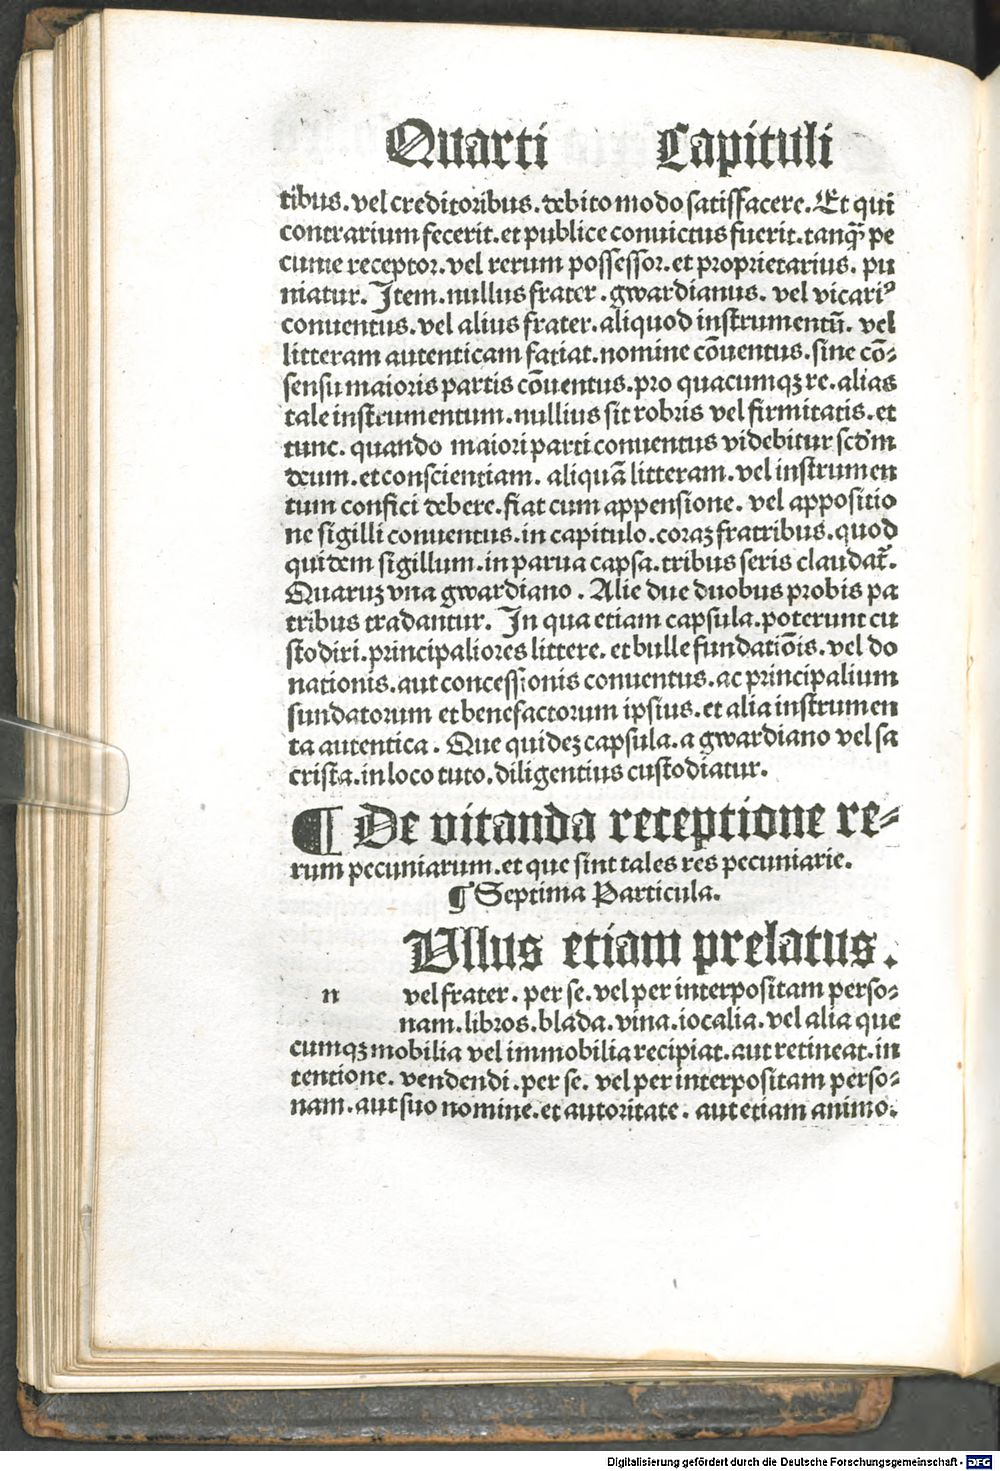 Quarti Capituli
tibus. vel creditoribus. debito modo satisfacere. Et qui
contrarium fecerit. et publice conuictus fuerit. tanqȝ̃ pe
cunie receptor. vel rerum possessor. et proprietarius. pu
niatur. Item. nullus frater. gwardianus. vel vicariꝰ
conuentus. vel alius frater. aliquod instrumentũ. vel
litteram autenticam fatiat. nomine cõuentus. sine cõ⸗
sensu maioris partis cõuentus. pro quacumqȝ re. alias
tale instrumentum. nullius sit robris vel firmitatis. et
tunc. quando maiori parti conuentus videbitur scdm̃
deum. et conscientiam. aliquã litteram. vel instrumen
tum confici debere. fiat cum appensione. vel appositio
ne sigilli conuentus. in capitulo. coraȝ fratribus. quod
quidem sigillum. in parua capsa. tribus seris claudat᷑.
Quaruȝ vna gwardiano. Alie due duobus probis pa
tribus tradantur. In qua etiam capsula. poterunt cu
stodiri. principaliores littere. et bulle fundatiõis. vel do
nationis. aut concessionis conuentus. ac principalium
fundatorum et benefactorum ipsius. et alia instrumen
ta autentica. Que quideȝ capsula. a gwardiano vel sa
crista. in loco tuto. diligentius custodiatur.
¶ De vitanda receptione re⸗
rum pecuniarum. et que sint tales res pecuniarie.
¶ Septima Particula.
Ullus etiam prelatus.
n vel frater. per se. vel per interpositam perso⸗
nam. libros. blada. vina. iocalia. vel alia que
cumqȝ mobilia vel immobilia recipiat. aut retineat. in
tentione. vendendi. per se. vel per interpositam perso⸗
nam. aut suo nomine. et autoritate. aut etiam animo.
Digitalisierung gefördert durch die Deutsche Forschungsgemeinschaft - DFG